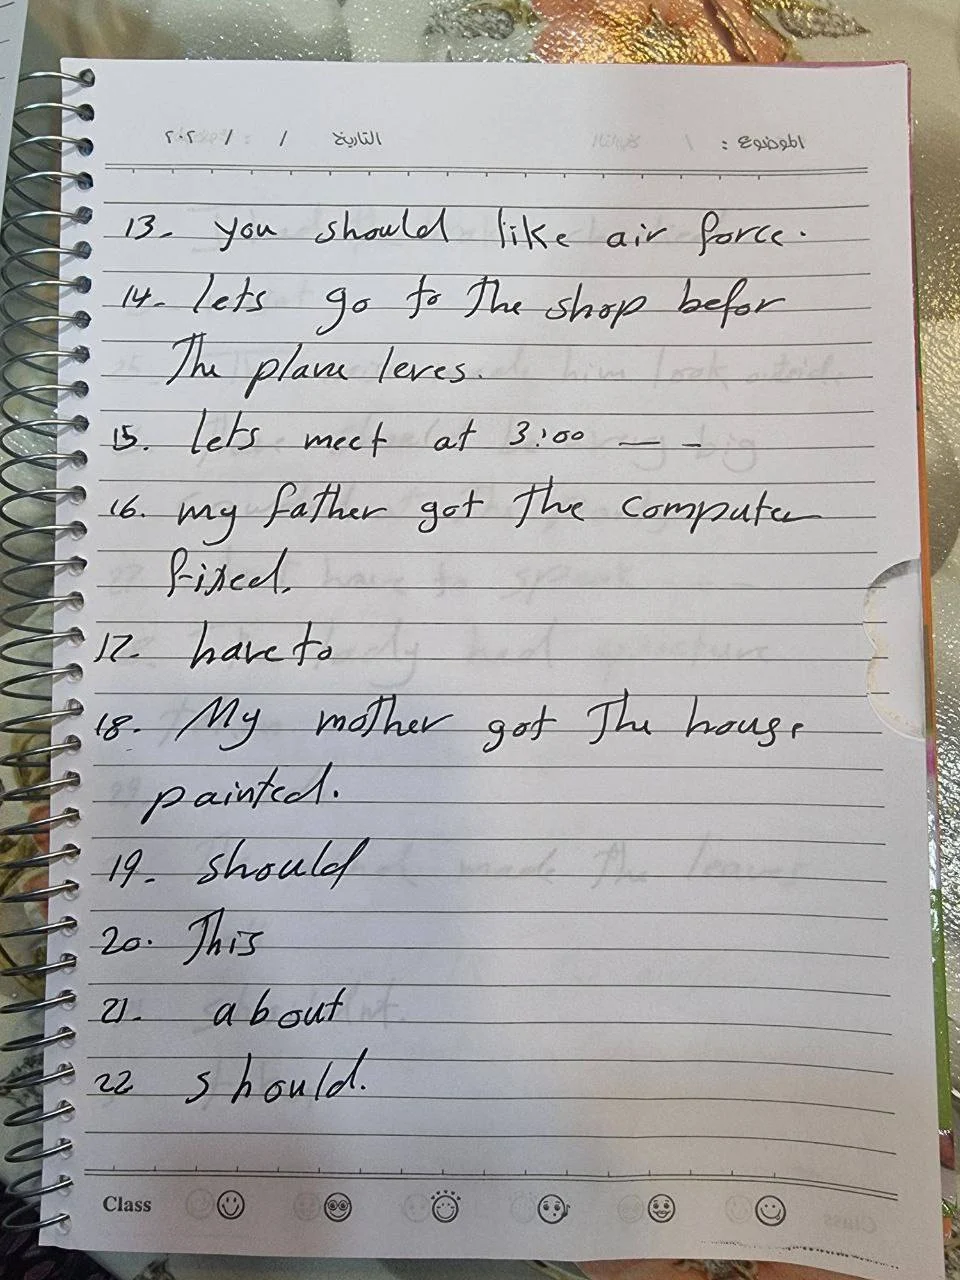 الموضوع : / التاريخ / / ٢٠٢
13- you should like air force.
14- lets go to The shop befor
The plane leves.
15. lets meet at 3:00 — -
16. my father got the computer
fixed.
17- have to
18- My mother got The house
painted.
19- should
20. This
21- about
22 should.
Class